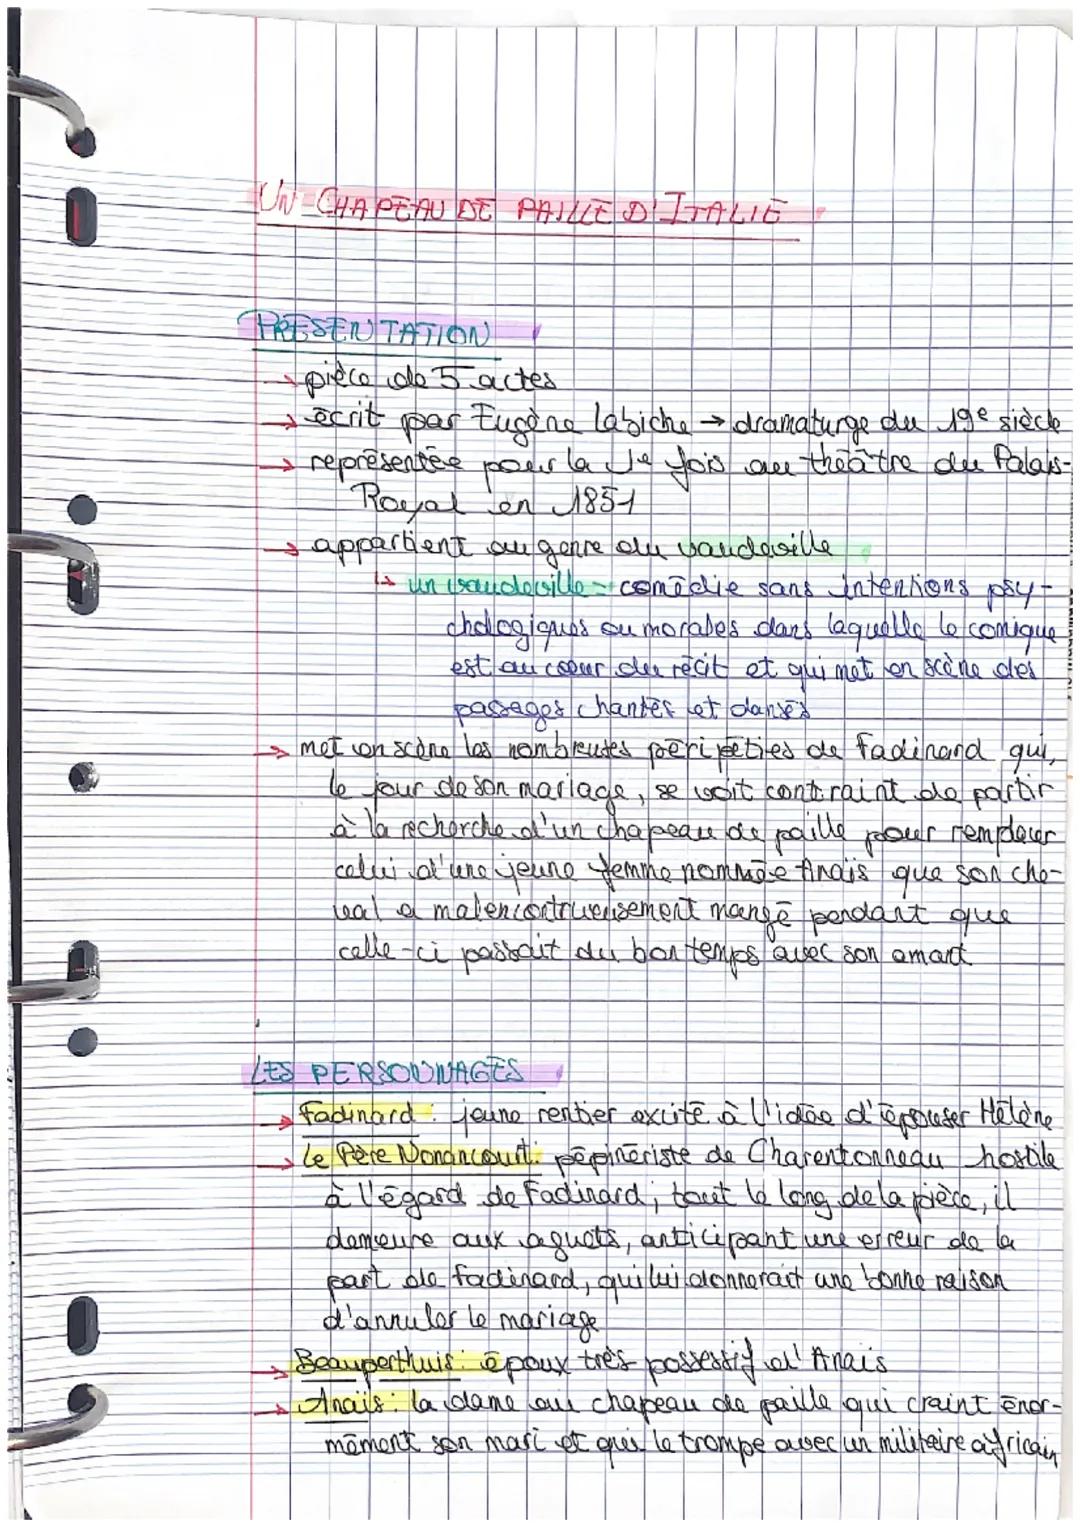 UN CHAPEAU DE PAILLE D'ITALIE
PRESENTATION
→ pièce de 5 actes
→ écrit par Eugène Labiche → dramaturge du 19e siècle
→ représentée pour la 1e fois au théâtre du Palais-
Royal en 1851
→ appartient au genre du vaudeville
↳ un vaudeville = comédie sans intentions psy-
chologiques ou morales dans laquelle le comique
est au coeur du récit et qui met en scène des
passages chantés et dansés
→ met en scène les nombreuses péripéties de Fadinard qui,
le jour de son mariage, se voit contraint de partir
à la recherche d'un chapeau de paille pour remplacer
celui d'une jeune femme nommée Anaïs que son che-
val a malencontrueusement mangé pendant que
celle-ci passait du bon temps avec son amant
LES PERSONNAGES
→ Fadinard : jeune rentier excité à l'idée d'épouser Hélène
→ Le Père Nonancourt : pépinériste de Charentonneau hostile
à l'égard de Fadinard ; tout le long de la pièce, il
demeure aux aguets, anticipant une erreur de la
part de Fadinard, qui lui donnerait une bonne raison
d'annuler le mariage
→ Beauperthuis : époux très possessif d'Anaïs
→ Anaïs : la dame au chapeau de paille qui craint énor-
mément son mari et qui le trompe avec un militaire africain